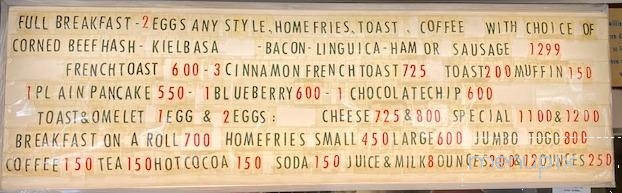 FULL BREAKFAST-2 EGGS ANY STYLE, HOMEFRIES, TOAST, COFFEE WITH CHOICE OF
CORNED BEEF HASH- KIELBASA -BACON-LINGUICA-HAM OR SAUSAGE 1299
FRENCH TOAST 600-3 CINNAMON FRENCH TOAST 725 TOAST 200 MUFFIN 150
1 PLAIN PANCAKE 550- 1 BLUEBERRY 600- 1 CHOCOLATECHIP 600
TOAST&OMELET 1EGG & 2EGGS: CHEESE 725 & 800 SPECIAL 1100 & 1200
BREAKFAST ON A ROLL 700 HOMEFRIES SMALL 450 LARGE 600 JUMBO TOGO 800
COFFEE 150 TEA 150 HOT COCOA 150 SODA 150 JUICE & MILK 8 OUNCES 200 & 12 OUNCES 250